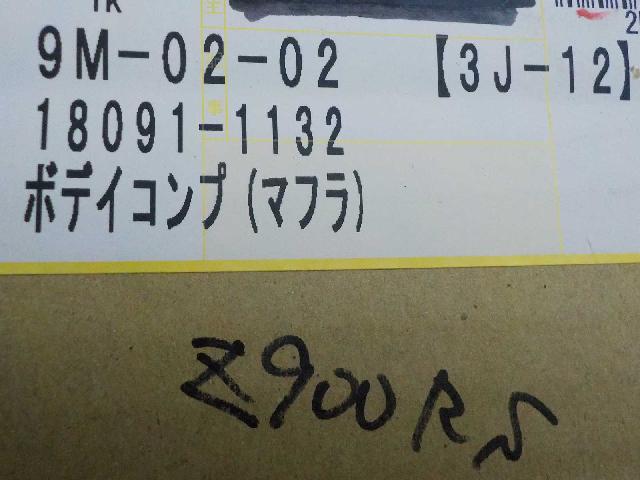 1K
9M-02-02 【3J-12】
18091-1132
ボデイコンプ(マフラ)
Z900RS